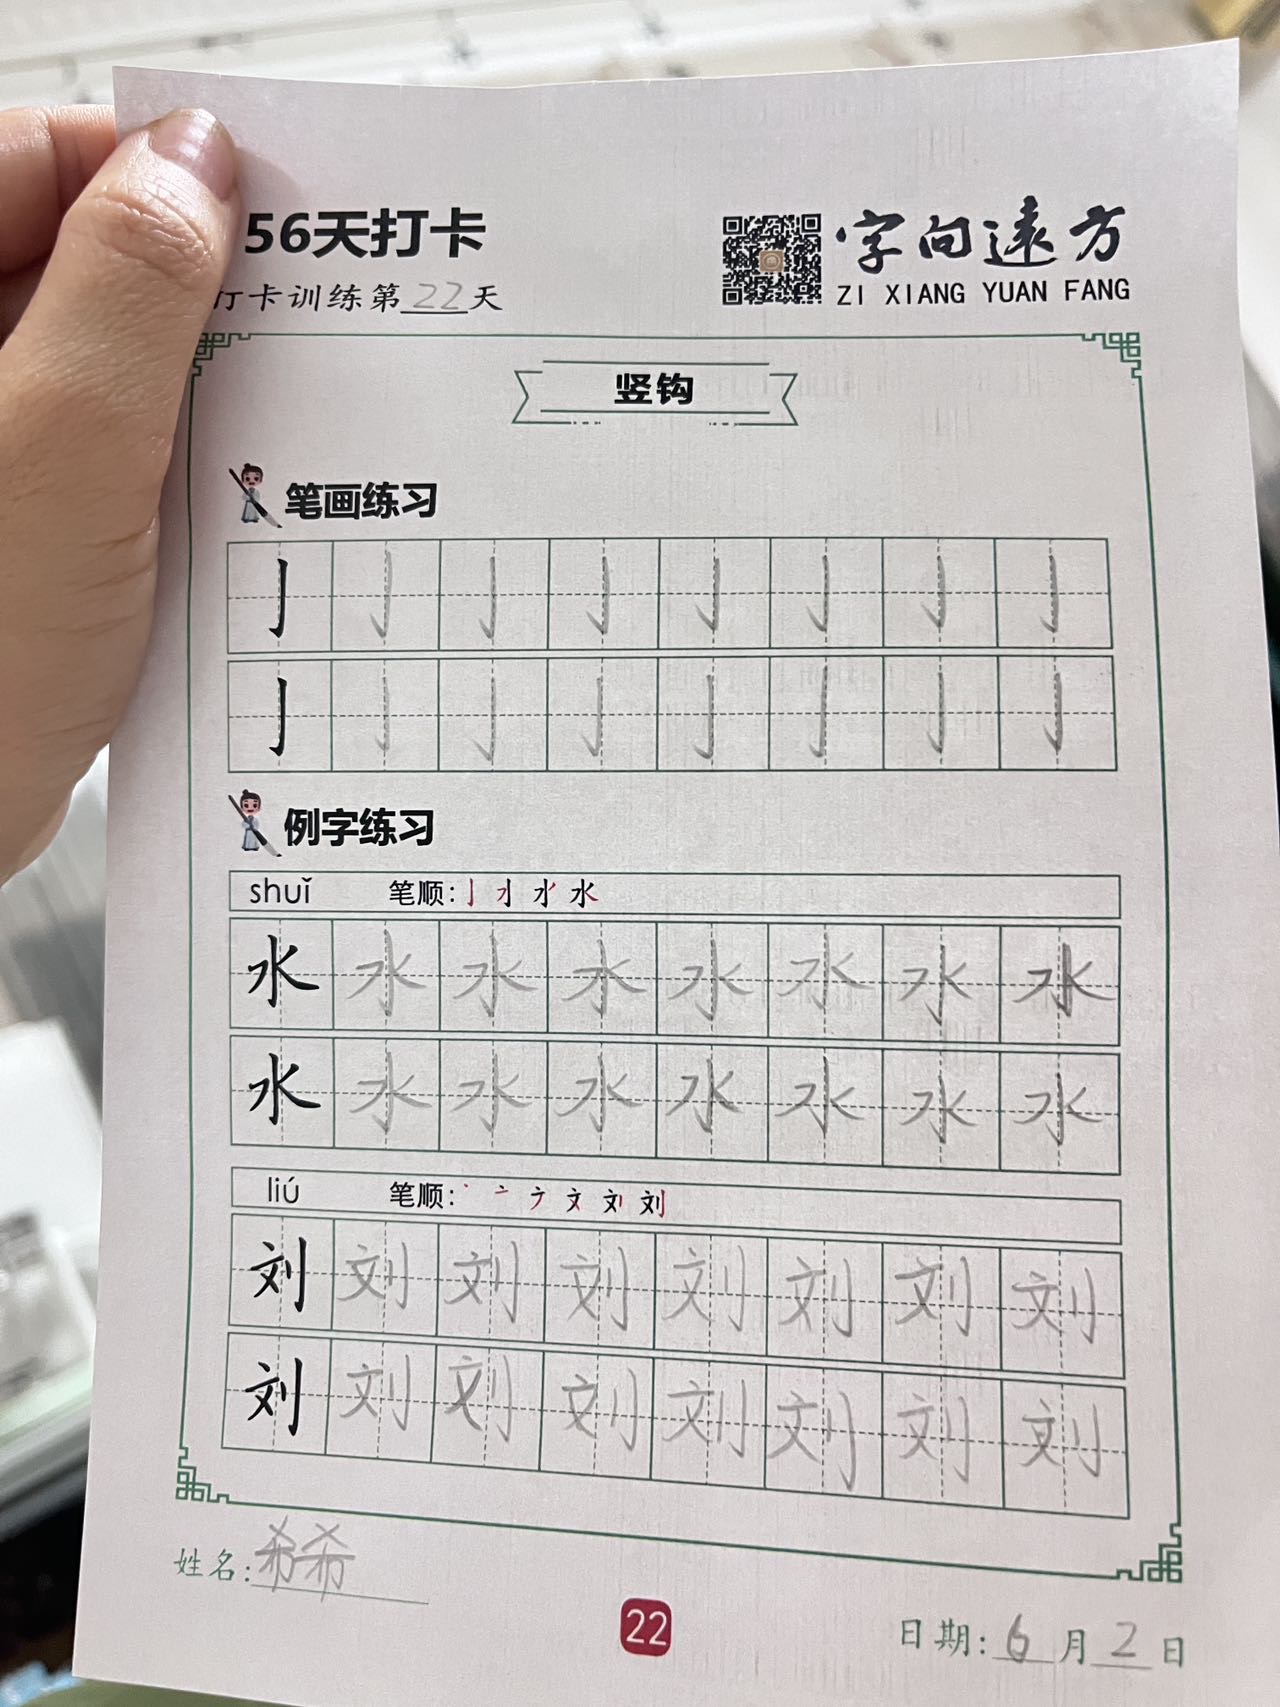 56天打卡
字向遠方
打卡训练第22天
ZI XIANG YUAN FANG
竖钩
笔画练习
亅 亅 亅 亅 亅 亅 亅 亅
亅 亅 亅 亅 亅 亅 亅 亅
例字练习
shuǐ 笔顺:
水 水 水 水 水 水 水 水
水 水 水 水 水 水 水 水
liú 笔顺:
刘 刘 刘 刘 刘 刘 刘 刘
刘 刘 刘 刘 刘 刘 刘 刘
姓名:希希
22
日期:6月2日